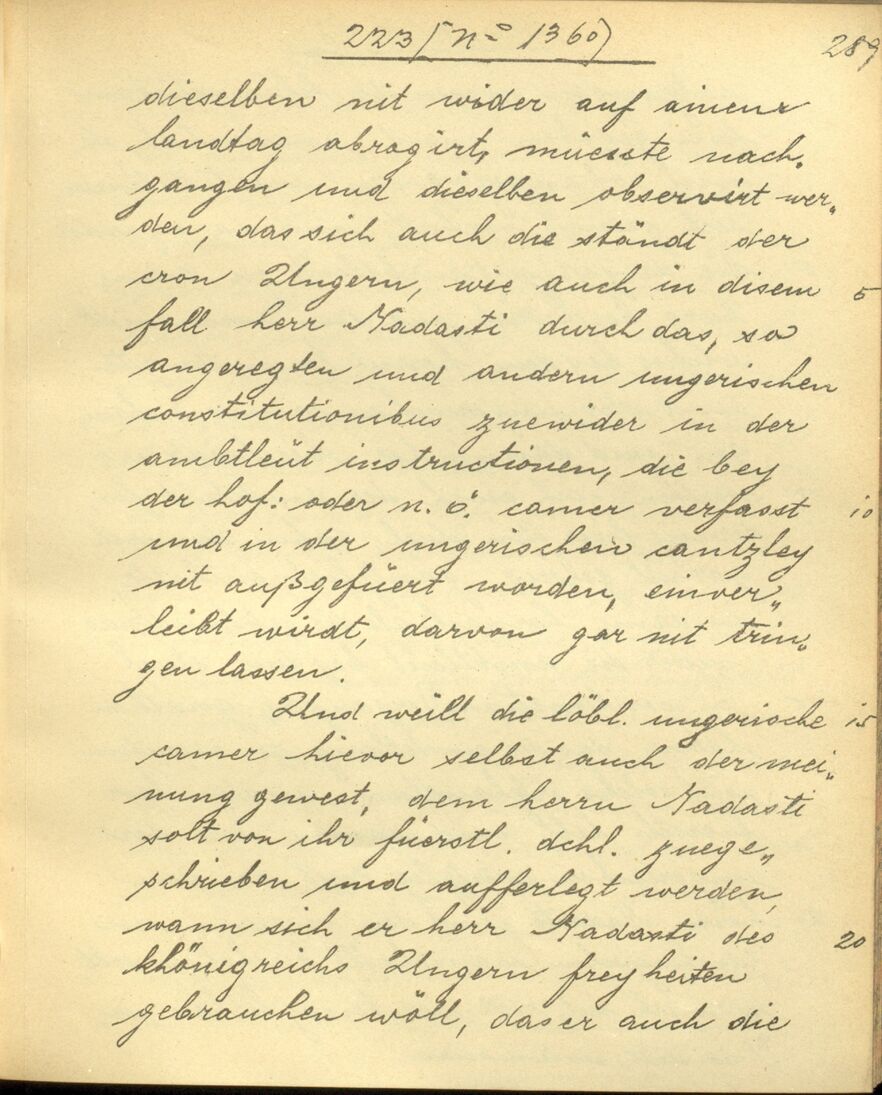 223 [No 1360)
289
dieselben nit wider auf ainem
landtag abrogirt, müesste nach„
gangen und dieselben observirt wer„
den, das sich auch die ständt der
cron Ungern, wie auch in disem 5
fall herr Nadasti durch das, so
angeregten und andern ungerischen
constitutionibus zuewider in der
ambtleüt instructionen, die bey
der hof: oder n. ö. camer verfasst 10
und in der ungerischen cantzley
nit außgefüert worden, einver„
leibt wirdt, darvon gar nit trin„
gen lassen.
Und weill die löbl. ungerische 15
camer hievor selbst auch der mei„
nung gewest, dem herrn Nadasti
solt von ihr füerstl. dchl. zuege„
schrieben und aufferlegt werden,
wann sich er herr Nadasti des 20
khönigreichs Ungern freyheiten
gebrauchen wöll, das er auch die